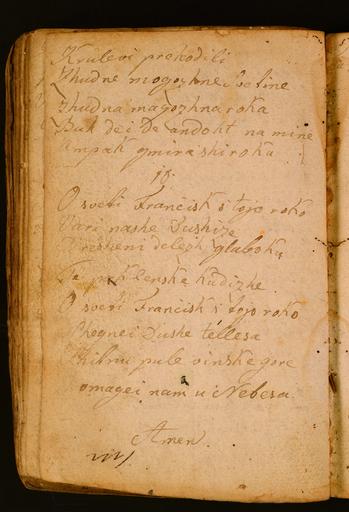 Krulevi prehodili
Zhudne mogozhne sve line
Zhudna magozhna roka
Buh dei de andoht na mine
Ampak gmira shiroka
18
O sveti Francisk s tojo roko
Vari nashe Dushize
delezh glaboku
peklenske hudizhe
O sveti Francisk s tojo roko
Shegnei Dushe tellesa
pule vinske gore
omagei nam u Nebesa
Amen